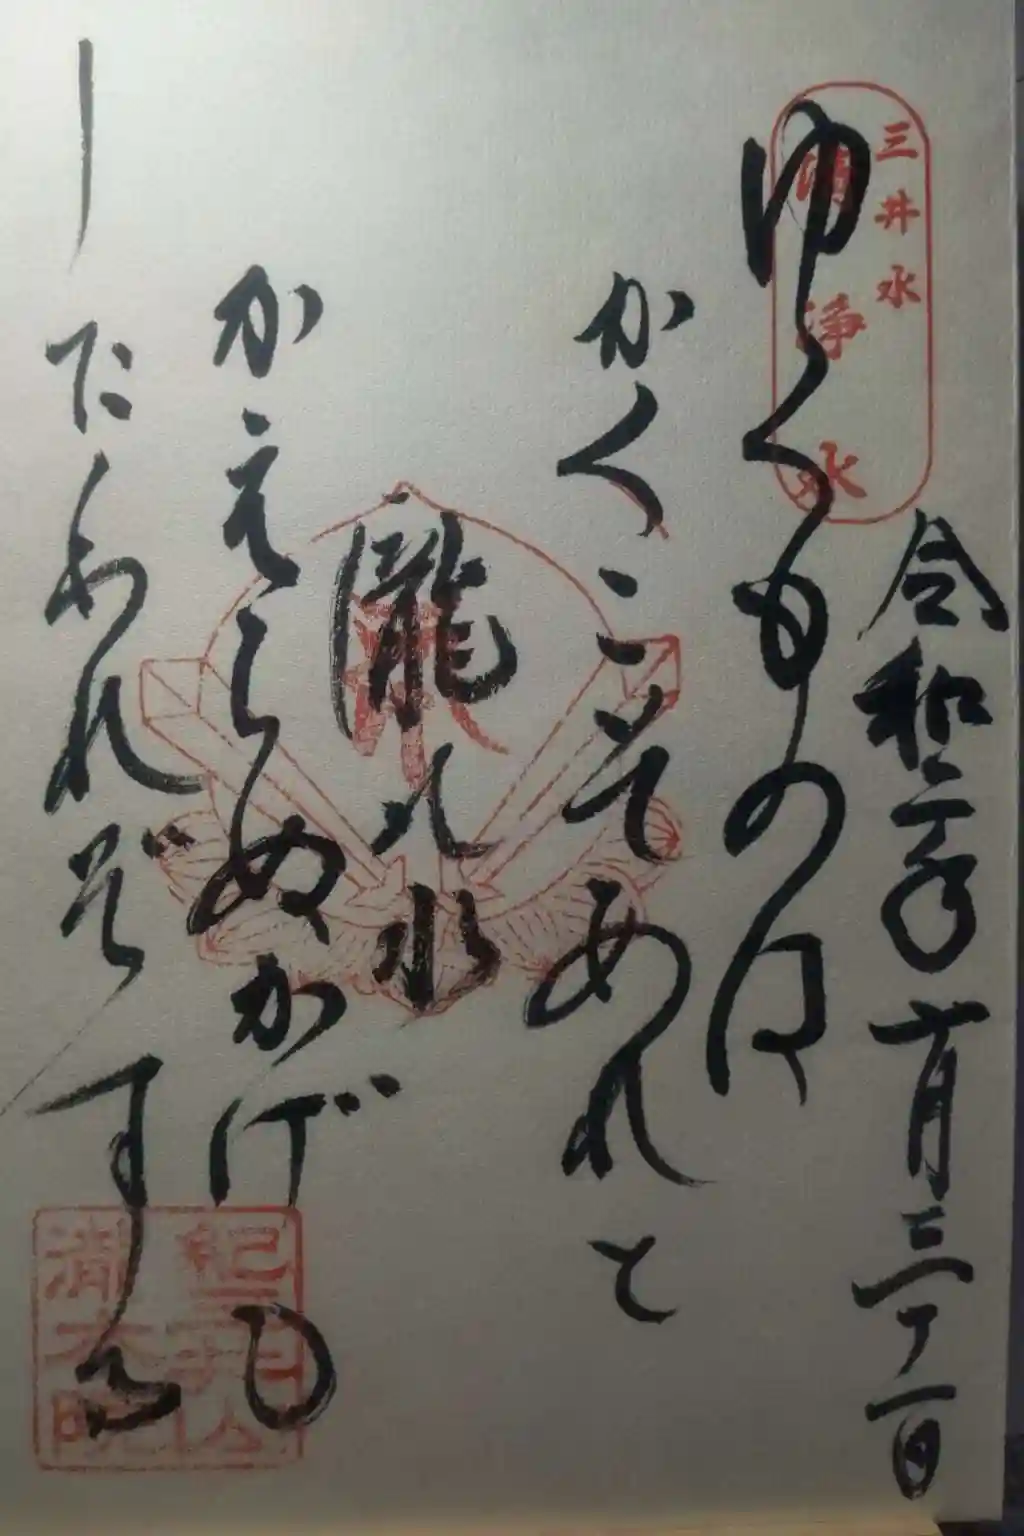 三井水
清浄水
令和二年十月三十一日
ゆくものは
かくこそあれと
瀧乃水
かえらぬかげの
したわれぞする
紀三井山